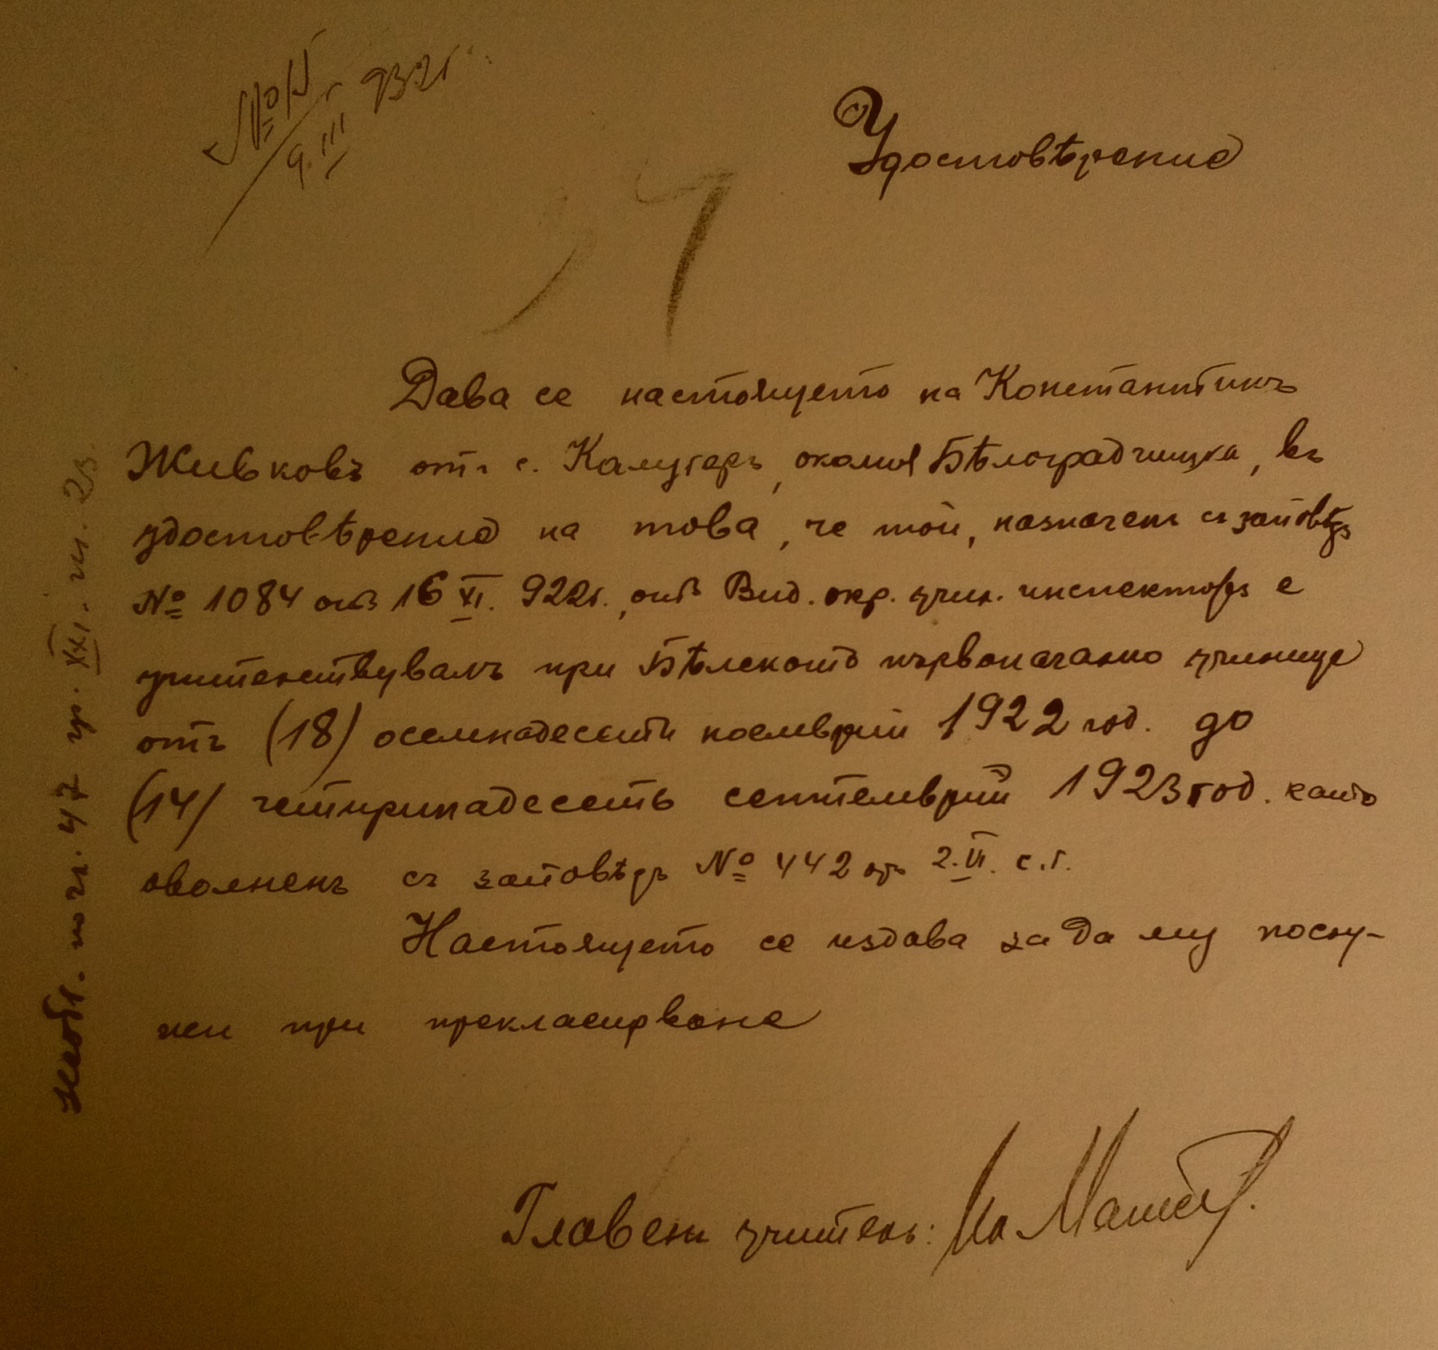 № 15
9. III 932 г.
Удостовѣрение
Дава се настоящето на Константинъ
Живковъ отъ с. Калугеръ, околия Бѣлоградчишка, въ
удостовѣрение на това, че той, назначенъ съ заповѣдь
№ 1084 отъ 16 XI. 922 г., отъ Вид. окр. учил. инспекторъ е
учителствувалъ при Бѣлското първоначално училище
отъ (18) осемнадесети ноемврий 1922 год. до
(14) четиринадесети септемврий 1923 год. като
оволненъ съ заповѣдь № 442 отъ 2. VI. с. г.
Настоящето се издава за да му послу-
жи при прекласирване
Главенъ учитель:
чл. 47
XXI.